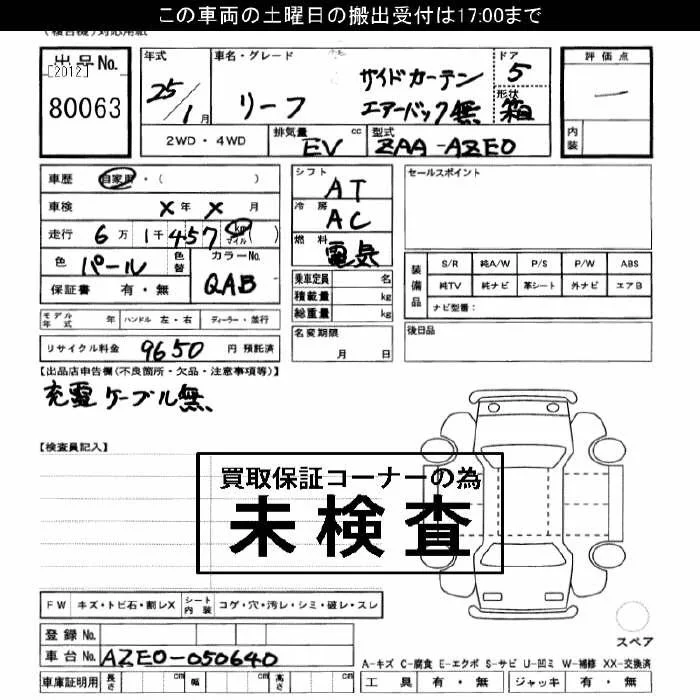 この車両の土曜日の搬出受付は17:00まで
出品No.
[2012]
80063
年式
25/1月
車名・グレード
リーフ
サイドカーテン
エアーバック無
ドア
5
形状
箱
評価点
内装
2WD・4WD
排気量
EV
cc
型式
ZAA-AZEO
車歴 自家用・( )
車検 X年 X月
走行 6万1千457km
マイル
色 パール
色替
カラーNo.
QAB
保証書 有・無
シフト
AT
冷房
AC
燃料
電気
乗車定員 名
積載量 kg
総重量 kg
セールスポイント
装備品
S/R 純A/W P/S P/W ABS
純TV 純ナビ 革シート 外ナビ エアB
ナビ型番:
モデル年式 年 ハンドル 左・右 ディーラー・並行
名変期限
月 日
後日品
リサイクル料金 9650 円 預託済
【出品店申告欄(不良箇所・欠品・注意事項等)】
充電ケーブル無、
【検査員記入】
買取保証コーナーの為
未検査
FW キズ・トビ石・割レX シート内装 コゲ・穴・汚レ・シミ・破レ・スレ
登録No.
車台No. AZEO-050640
スペア
A-キズ C-腐食 E-エクボ S-サビ U-凹ミ W-補修 XX-交換済
車庫証明用 長さ cm 幅 cm 高さ cm 工具 有・無 ジャッキ 有・無